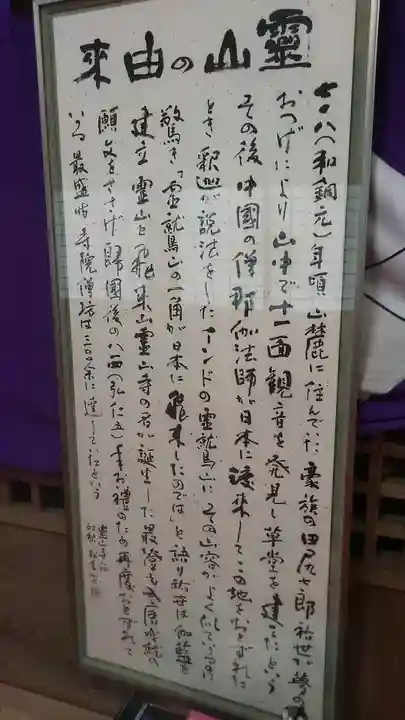 靈山の由来
七〇八(和銅元)年頃 山麓に住んでいた豪族の田尻七郎祐世が夢の
おつげにより山中で十一面観音を発見し草堂を建てたという
その後中國の僧那伽法師が日本に渡来してこの地をおとずれた
とき釈迦が説法をしたインドの霊鷲山にその山容がよくにているのに
驚き「霊鷲山の一角が日本に飛来したのでは」と語り祐世は伽藍を
建立 霊山を飛来山霊山寺の名が誕生した 最澄も入唐成就の
願文をささげ歸國後の八一四(弘仁五)年お禮のため再度おとずれて
いる 最盛時寺院僧坊は三〇〇余に達していたという